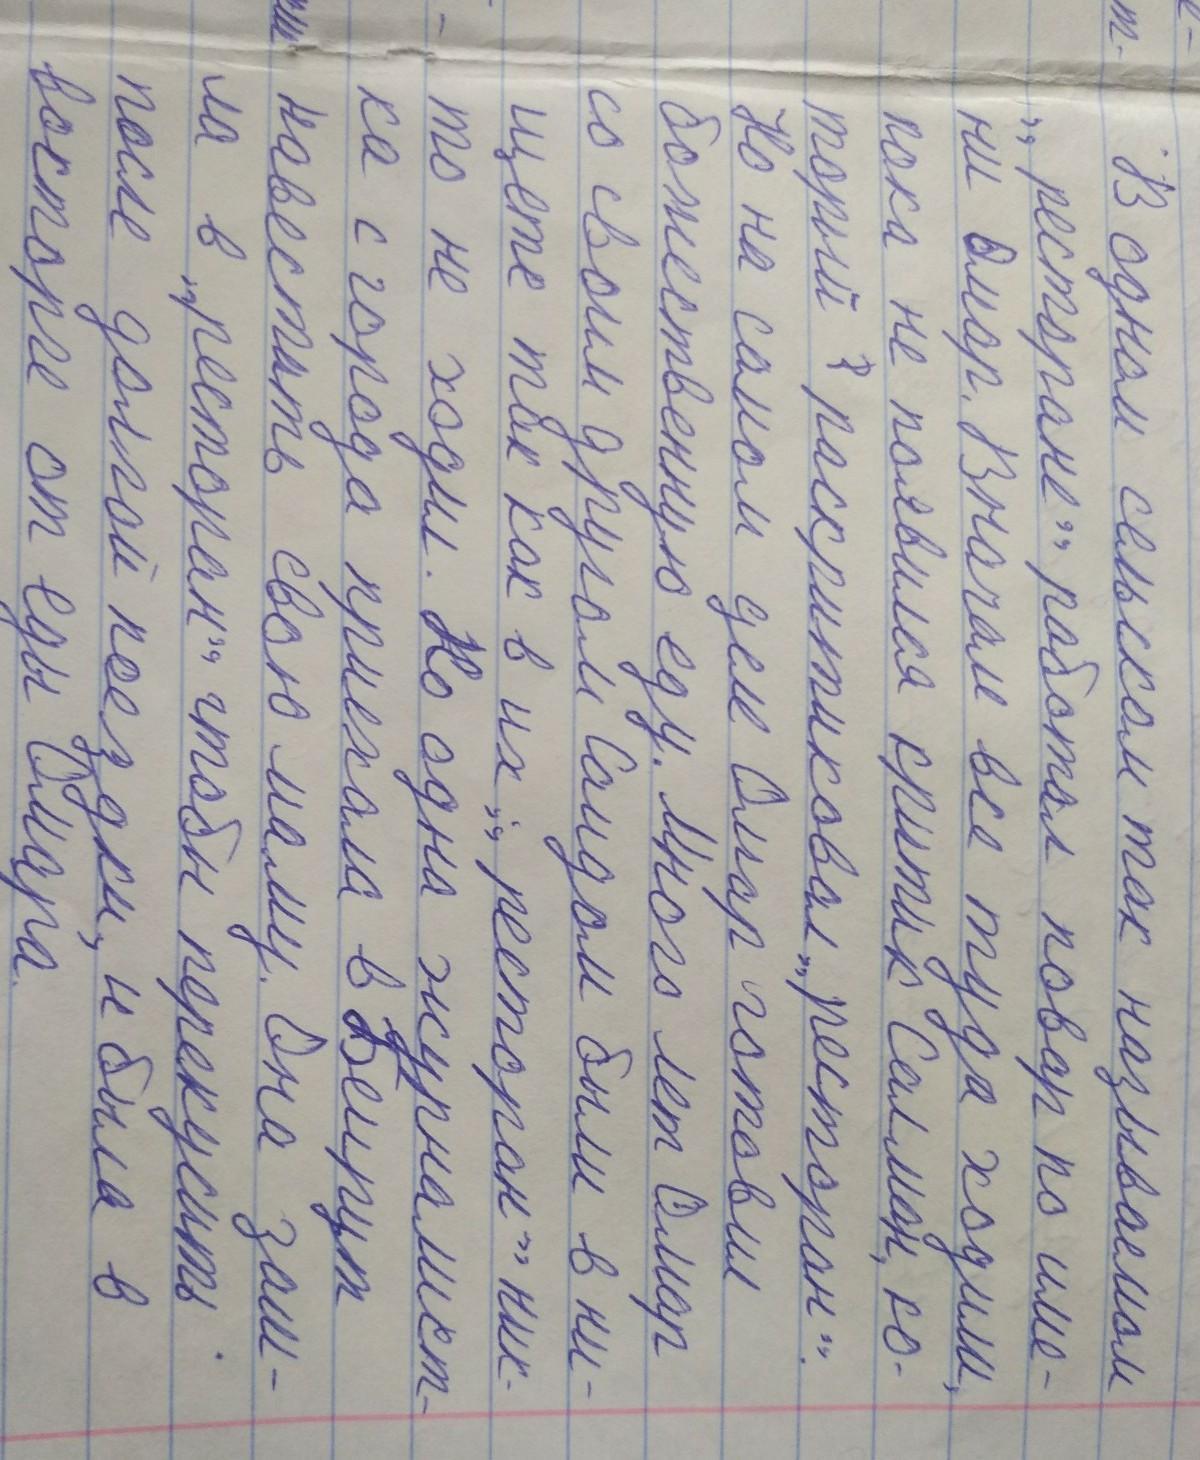 В одном сельском так называемом
„ресторане„ работал повар по име-
ни Омар. Вначале все туда ходили,
пока не появился критик Салман, ко-
торый раскритиковал „ресторан".
Но на самом деле Омар готовил
божественную еду. Много лет Омар
со своим другом Саидом были в ни-
щете так как в их „ресторан" ник-
то не ходил. Но одна журналист-
ка с города приехала в Бейрут
навестить свою маму. Она заш-
ла в „ресторан" чтобы перекусить
после долгой поездки, и была в
восторге от еды Омара.